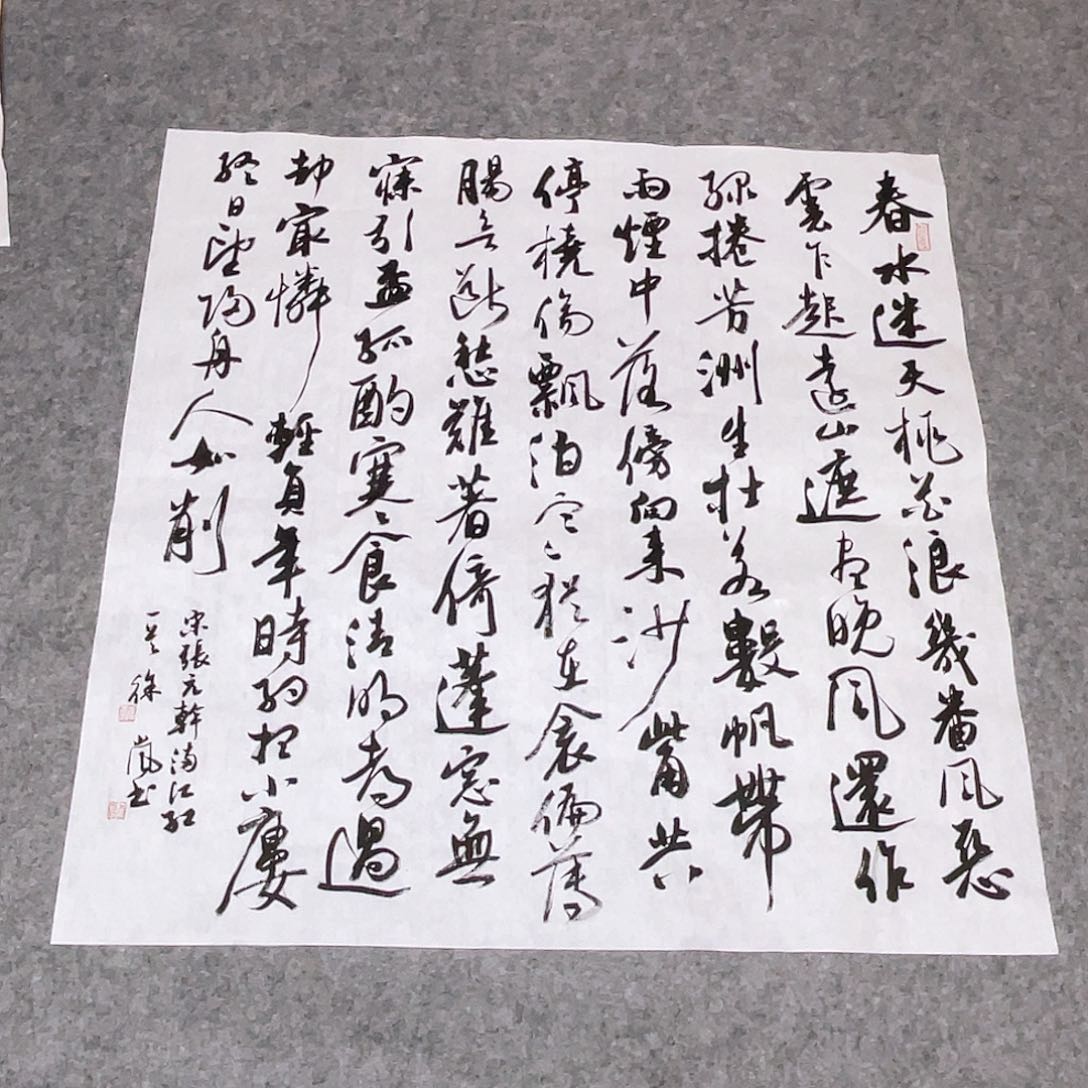 春水迷天桃花浪幾番風惡
雲乍起遠山遮盡晚風還作
綠捲芳洲生杜若數帆帶
雨煙中落傍向來沙觜共
停橈傷飄泊寒猶在衾偏薄
腸欲斷愁難著倚蓬窓無
寐引盃孤酌寒食清明都過
却㝡憐輕負年時約想小廔
終日望歸舟人如削
宋張元幹滿江紅
徐嵐書